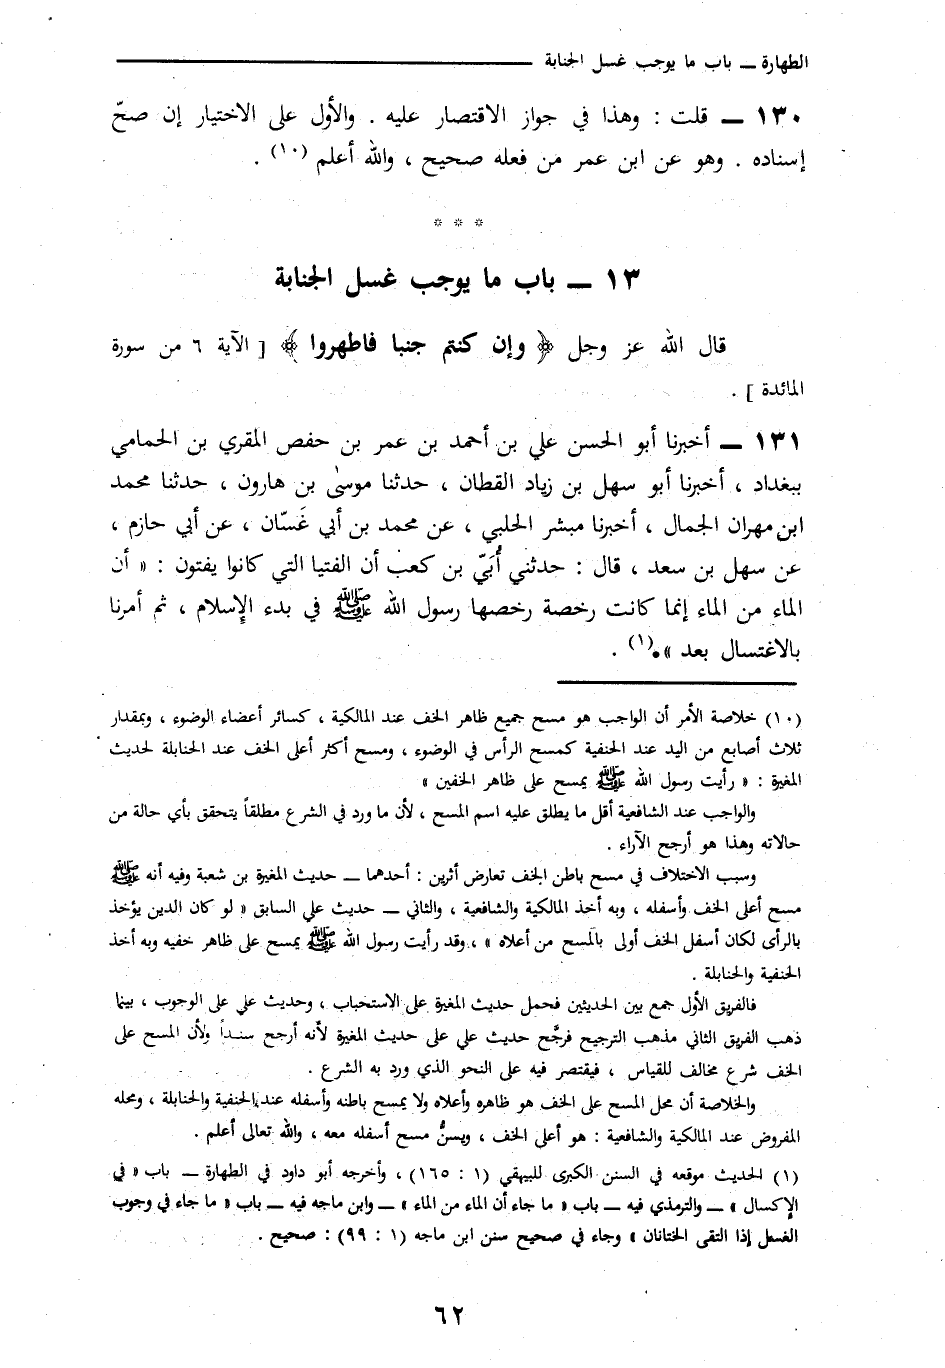 الطهارة ــ باب ما يوجب غسل الجنابة
١٣٠ ــ قلت : وهذا في جواز الاقتصار عليه . والأول على الاختيار إن صحّ
إسناده . وهو عن ابن عمر من فعله صحيح ، والله أعلم (١٠) .
* * *
١٣ ــ باب ما يوجب غسل الجنابة
قال الله عز وجل ﴿ وإن كنتم جنبا فاطهروا ﴾ [ الآية ٦ من سورة
المائدة ] .
١٣١ ــ أخبرنا أبو الحسن علي بن أحمد بن عمر بن حفص المقري بن الحمامي
ببغداد ، أخبرنا أبو سهل بن زياد القطان ، حدثنا موسىٰ بن هارون ، حدثنا محمد
ابن مهران الجمال ، أخبرنا مبشر الحلبي ، عن محمد بن أبي غَسّان ، عن أبي حازم ،
عن سهل بن سعد ، قال : حدثني أُبَيّ بن كعب أن الفتيا التي كانوا يفتون : « أن
الماء من الماء إنما كانت رخصة رخصها رسول الله ﷺ في بدء الإسلام ، ثم أمرنا
بالاغتسال بعد ».(١) .
(١٠) خلاصة الأمر أن الواجب هو مسح جميع ظاهر الخف عند المالكية ، كسائر أعضاء الوضوء ، وبمقدار
ثلاث أصابع من اليد عند الحنفية كمسح الرأس في الوضوء ، ومسح أكثر أعلى الخف عند الحنابلة لحديث
المغيرة : « رأيت رسول الله ﷺ يمسح على ظاهر الخفين »
والواجب عند الشافعية أقل ما يطلق عليه اسم المسح ، لأن ما ورد في الشرع مطلقاً يتحقق بأي حالة من
حالاته وهذا هو أرجح الآراء .
وسبب الاختلاف في مسح باطن الخف تعارض أثرين : أحدهما ــ حديث المغيرة بن شعبة وفيه أنه ﷺ
مسح أعلى الخف وأسفله ، وبه أخذ المالكية والشافعية ، والثاني ــ حديث علي السابق « لو كان الدين يؤخذ
بالرأى لكان أسفل الخف أولى بالمسح من أعلاه » ، وقد رأيت رسول الله ﷺ يمسح على ظاهر خفيه وبه أخذ
الحنفية والحنابلة .
فالفريق الأول جمع بين الحديثين فحمل حديث المغيرة على الاستحباب ، وحديث علي على الوجوب ، بينما
ذهب الفريق الثاني مذهب الترجيح فرجَّح حديث علي على حديث المغيرة لأنه أرجح سنداً ولأن المسح على
الخف شرع مخالف للقياس ، فيقتصر فيه على النحو الذي ورد به الشرع .
والخلاصة أن محل المسح على الخف هو ظاهره وأعلاه ولا يمسح باطنه وأسفله عند الحنفية والحنابلة ، ومحله
المفروض عند المالكية والشافعية : هو أعلى الخف ، ويسنُّ مسح أسفله معه ، والله تعالى أعلم .
(١) الحديث موقعه في السنن الكبرى للبيهقي (١ : ١٦٥) ، وأخرجه أبو داود في الطهارة ــ باب « في
الإكسال » ــ والترمذي فيه ــ باب « ما جاء أن الماء من الماء » ــ وابن ماجه فيه ــ باب « ما جاء في وجوب
الغسل إذا التقى الختانان » وجاء في صحيح سنن ابن ماجه (١ : ٩٩) : صحيح .
٦٢